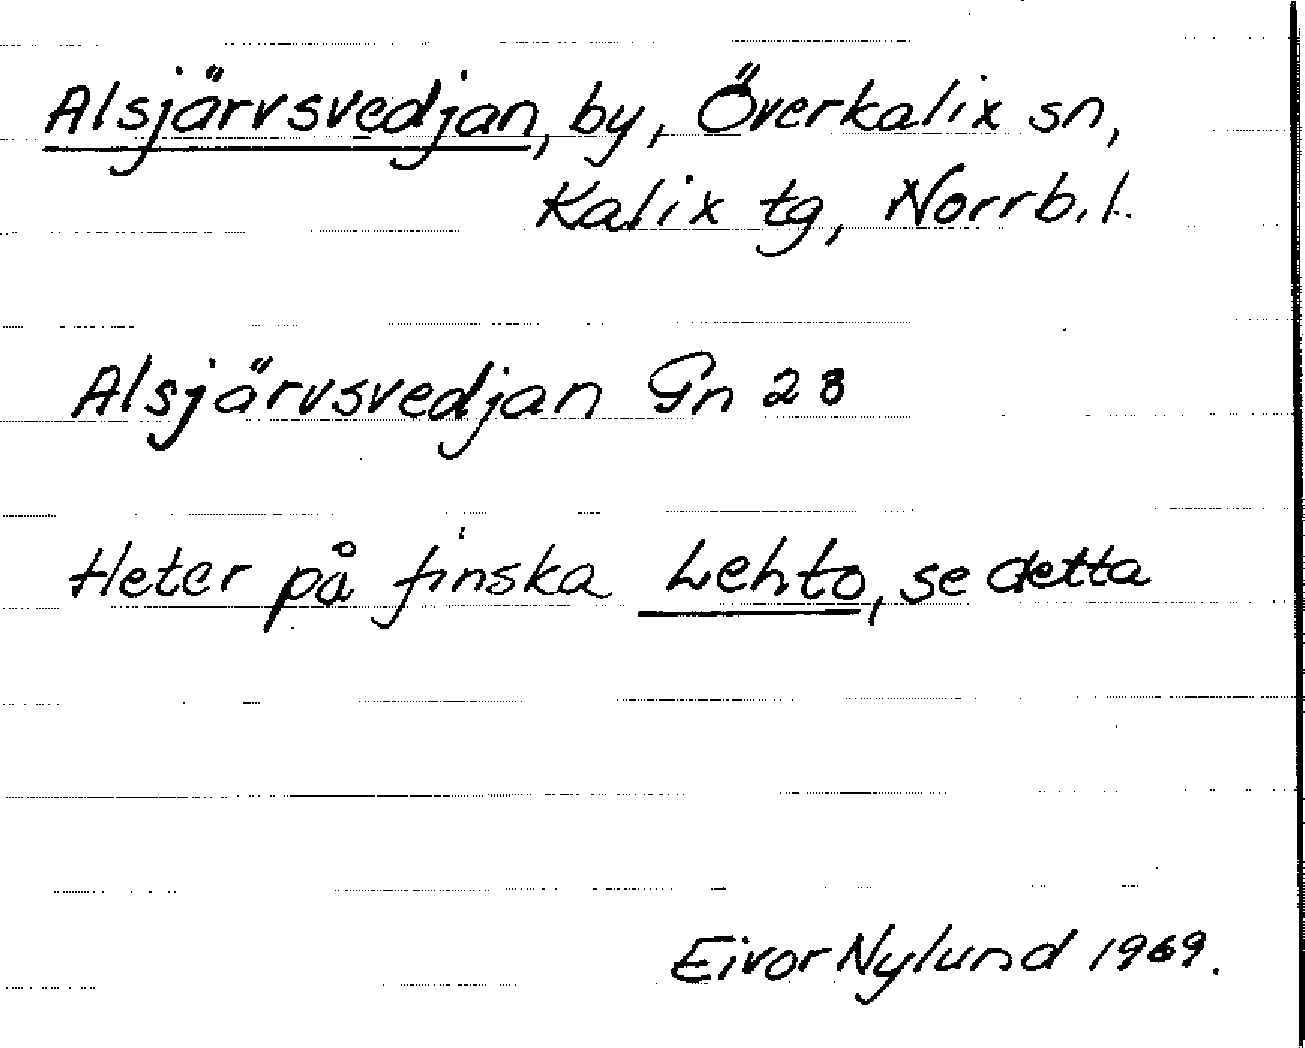 Alsjärvsvedjan, by, Överkalix sn,
Kalix tg, Norrb.l.
Alsjärvsvedjan Gn 28
Heter på finska Lehto, se detta
Eivor Nylund 1969.